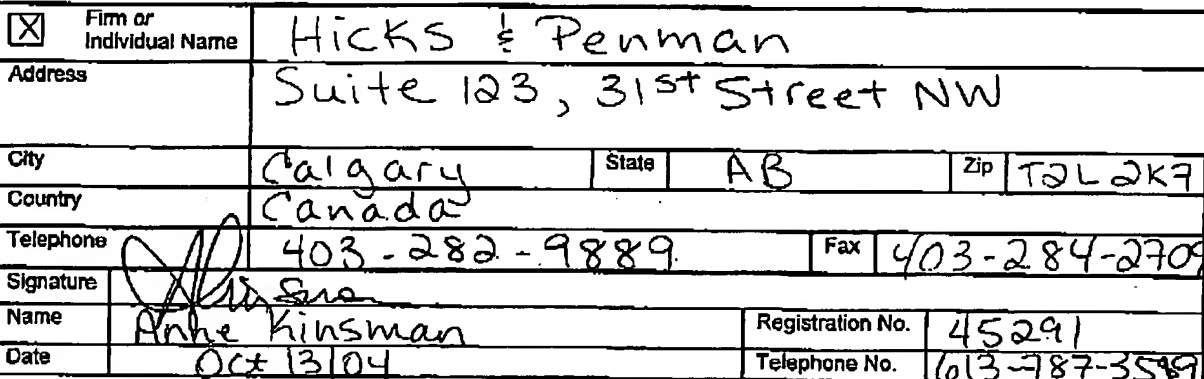 ☒ Firm or Individual Name Hicks & Penman
Address Suite 123, 31st Street NW
City Calgary State AB Zip T2L 2K7
Country Canada
Telephone 403-282-9889 Fax 403-284-2709
Signature
Name Anne Kinsman Registration No. 45291
Date Oct 13/04 Telephone No. 613-787-3589